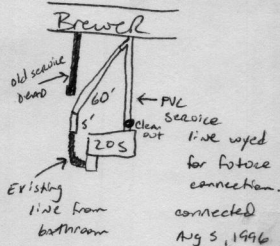 BREWER
old service
DEAD
60'
5'
← PVC
SERVICE
Clean
out
20S
line wyed
for future
connection.
Existing
line from
bathroom
connected
Aug 5, 1996